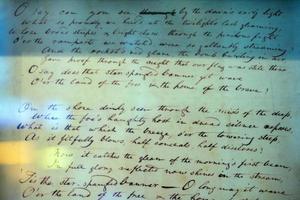 O say can you see by the dawn's early light
What so proudly we hail'd at the twilight's last gleaming
broad stripes & bright stars through the perilous fight
O'er the ramparts we watch'd, were so gallantly streaming?
And the rocket's red glare, the bomb bursting in air,
Gave proof through the night that our flag was still there
O say does that star-spangled banner yet wave
O'er the land of the free & the home of the brave?
On the shore dimly seen through the mists of the deep,
Where the foe's haughty host in dread silence reposes,
What is that which the breeze, o'er the towering steep,
As it fitfully blows, half conceals, half discloses?
Now it catches the gleam of the morning's first beam,
In full glory reflected now shines in the stream,
'Tis the star-spangled banner — O long may it wave
O'er the land of the free & the home